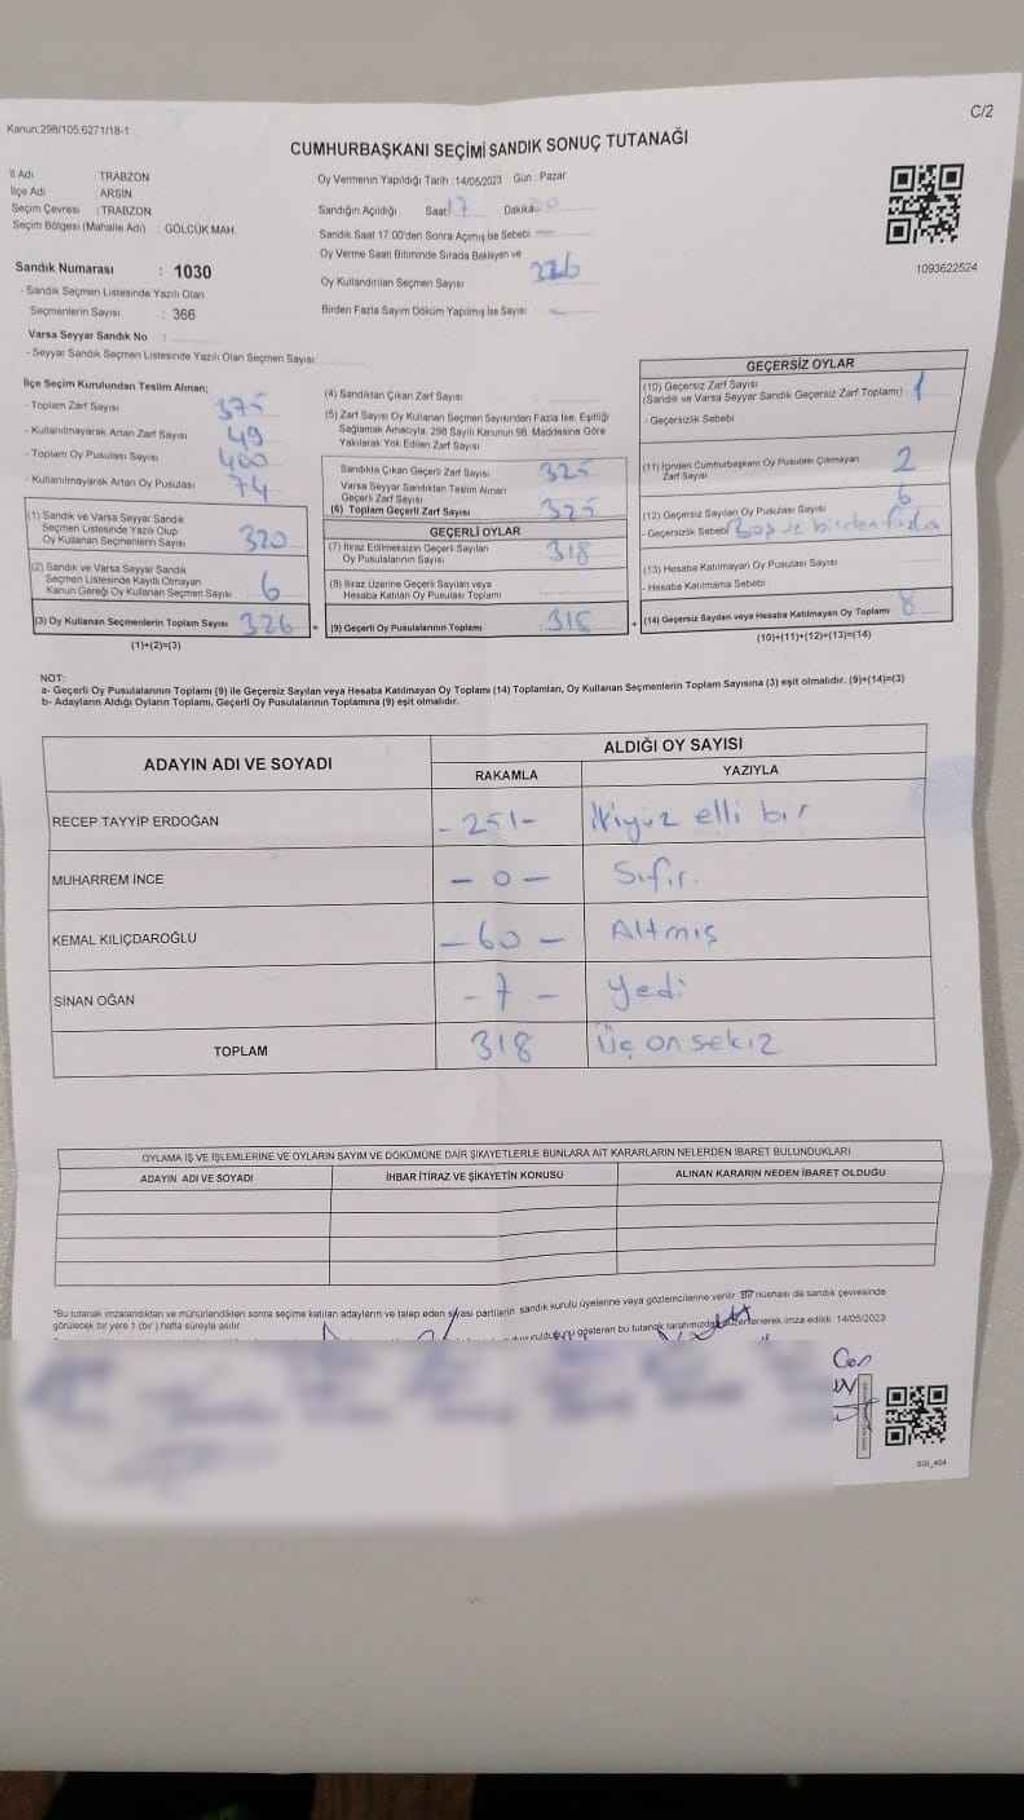 C/2
Kanun:298/105,6271/18-1
CUMHURBAŞKANI SEÇİMİ SANDIK SONUÇ TUTANAĞI
İl Adı : TRABZON
İlçe Adı : ARSİN
Seçim Çevresi : TRABZON
Seçim Bölgesi (Mahalle Adı) : GÖLCÜK MAH.
Sandık Numarası : 1030
- Sandık Seçmen Listesinde Yazılı Olan
Seçmenlerin Sayısı : 366
Varsa Seyyar Sandık No :
- Seyyar Sandık Seçmen Listesinde Yazılı Olan Seçmen Sayısı:
Oy Vermenin Yapıldığı Tarih :14/05/2023 Gün : Pazar
Sandığın Açıldığı Saat 17 Dakika 00
Sandık Saat 17:00'den Sonra Açılmış İse Sebebi
Oy Verme Saati Bitiminde Sırada Bekleyen ve
Oy Kullandırılan Seçmen Sayısı
Birden Fazla Sayım Döküm Yapılmış İse Sayısı
1093622524
İlçe Seçim Kurulundan Teslim Alınan;
- Toplam Zarf Sayısı 375
- Kullanılmayarak Artan Zarf Sayısı 49
- Toplam Oy Pusulası Sayısı 400
- Kullanılmayarak Artan Oy Pusulası 74
(1) Sandık ve Varsa Seyyar Sandık
Seçmen Listesinde Yazılı Olup
Oy Kullanan Seçmenlerin Sayısı 320
(2) Sandık ve Varsa Seyyar Sandık
Seçmen Listesinde Kayıtlı Olmayan
Kanun Gereği Oy Kullanan Seçmen Sayısı 6
(3) Oy Kullanan Seçmenlerin Toplam Sayısı 326
(1)+(2)=(3)
(4) Sandıktan Çıkan Zarf Sayısı
(5) Zarf Sayısı Oy Kullanan Seçmen Sayısından Fazla İse, Eşitliği
Sağlamak Amacıyla, 298 Sayılı Kanunun 98. Maddesine Göre
Yakılarak Yok Edilen Zarf Sayısı
Sandıkta Çıkan Geçerli Zarf Sayısı 325
Varsa Seyyar Sandıktan Teslim Alınan
Geçerli Zarf Sayısı
(6) Toplam Geçerli Zarf Sayısı 325
GEÇERLİ OYLAR
(7) İtiraz Edilmeksizin Geçerli Sayılan
Oy Pusulalarının Sayısı 318
(8) İtiraz Üzerine Geçerli Sayılan veya
Hesaba Katılan Oy Pusulası Toplamı
(9) Geçerli Oy Pusulalarının Toplamı
GEÇERSİZ OYLAR
(10) Geçersiz Zarf Sayısı
(Sandık ve Varsa Seyyar Sandık Geçersiz Zarf Toplamı) 1
- Geçersizlik Sebebi
(11) İçinden Cumhurbaşkanı Oy Pusulası Çıkmayan
Zarf Sayısı 2
(12) Geçersiz Sayılan Oy Pusulası Sayısı 6
- Geçersizlik Sebebi Boş ve birden fazla
(13) Hesaba Katılmayan Oy Pusulası Sayısı
- Hesaba Katılmama Sebebi
(14) Geçersiz Sayılan veya Hesaba Katılmayan Oy Toplamı 8
(10)+(11)+(12)+(13)=(14)
NOT:
a- Geçerli Oy Pusulalarının Toplamı (9) ile Geçersiz Sayılan veya Hesaba Katılmayan Oy Toplamı (14) Toplamları, Oy Kullanan Seçmenlerin Toplam Sayısına (3) eşit olmalıdır. (9)+(14)=(3)
b- Adayların Aldığı Oyların Toplamı, Geçerli Oy Pusulalarının Toplamına (9) eşit olmalıdır.
ADAYIN ADI VE SOYADI ALDIĞI OY SAYISI
RAKAMLA YAZIYLA
RECEP TAYYİP ERDOĞAN - 251 - İkiyüz elli bir
MUHARREM İNCE - 0 - Sıfır.
KEMAL KILIÇDAROĞLU - 60 - Altmış
SİNAN OĞAN - 7 - Yedi
TOPLAM 318 Üç on sekiz
OYLAMA İŞ VE İŞLEMLERİNE VE OYLARIN SAYIM VE DÖKÜMÜNE DAİR ŞİKAYETLERLE BUNLARA AİT KARARLARIN NELERDEN İBARET BULUNDUKLARI
ADAYIN ADI VE SOYADI İHBAR İTİRAZ VE ŞİKAYETİN KONUSU ALINAN KARARIN NEDEN İBARET OLDUĞU
*Bu tutanak imzalandıktan ve mühürlendikten sonra seçime katılan adayların ve talep eden siyasi partilerin sandık kurulu üyelerine veya gözlemcilerine verilir. Bir nüshası da sandık çevresinde
görülecek bir yere 1 (bir) hafta süreyle asılır.
gösteren bu tutanak tarafımızdan düzenlenerek imza edildi. 14/05/2023